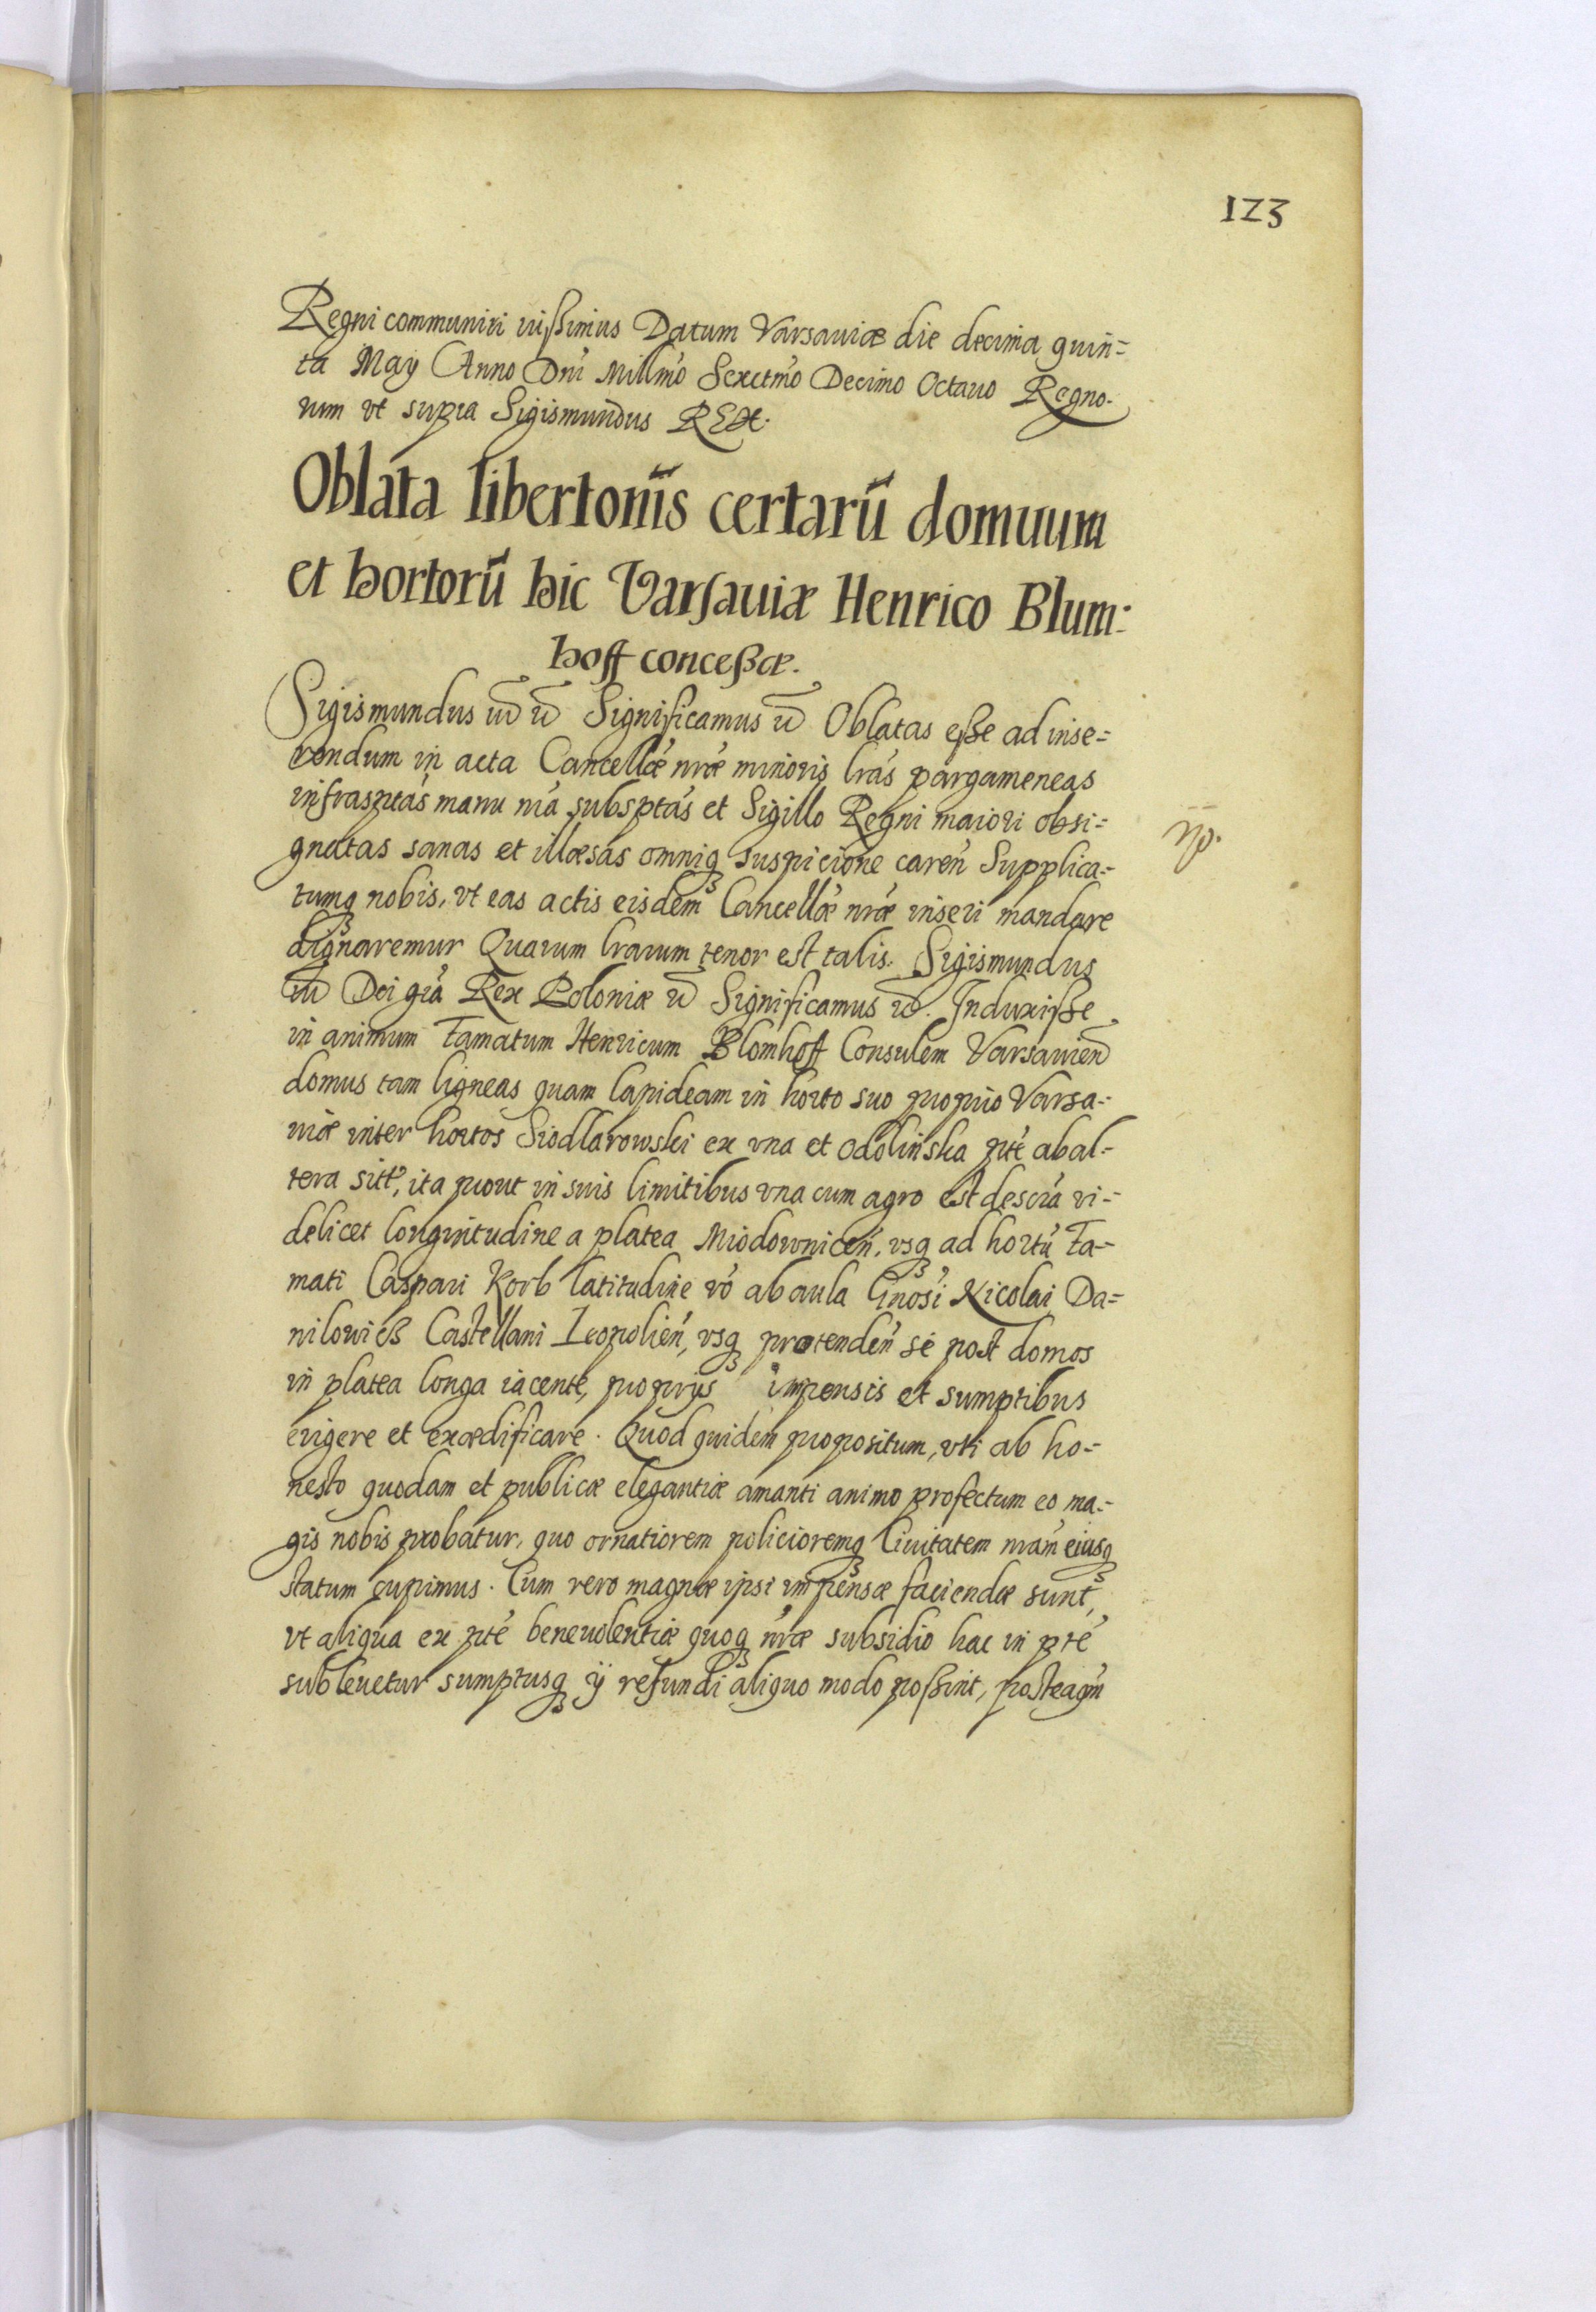 123
Regni communiri iußimus Datum Varsauiæ die decima quin=
ta May Anno Dnı́ Millmó Sexctmó Decimo Octauo Regno.
rum vt supra Sigismundus REX.
Oblata libertonı̃s certarũ domuum
et hortorũ hic Varsauiæ Henrico Blum:
hoff conceßæ.
Sigismundus Significamus Oblatas eße ad inse=
rendum in acta Cancellǽ nrǽ minoris lrás pargameneas
infrasptás manu nrá subsptás et Sigillo Regni maiori obsi=
np.
gnatas sanas et illæsas omniq suspicione careń Supplica=
tumq nobis, vt eas actis eisdem Cancellǽ nrǽ inseri mandare
dignaremur Quarum lrarum tenor est talis. Sigismundus
Dei grá Rex Poloniæ Significamus Induxiße
in animum Famatum Henricum Blomhoff Consulem Varsauien
domus tam ligneas quam lapideam in horto suo proprio Varsa=
uiæ inter hortos Siodlarowski ex vna et Odolińska pté ab al=
tera sitt, ita prout in suis limitibus vna cum agro est descrá vi=
delicet longintudine a platea Miodowniceń, vsq ad hortú Fa=
mati Caspari Korb latitudine vó ab aula Gnósi Nicolai Da=
nilowicß Castellani Leopolień, vsq protendeń se post domos
in platea longa iacente, proprijs impensis et sumptibus
erigere et exædificare. Quod quidem propositum, vti ab ho=
nesto quodam et publicæ elegantiæ amanti animo profectum eo ma=
gis nobis probatur, quo ornatiorem policioremq Ciuitatem nrám eiusq
statum cupimus. Cum vero magnæ ipsi impensæ faciendæ sunt,
vt aliqua ex pté beneuolentiæ quoq nrǽ subsidio hac in pté
subleuetur sumptusq ij refundi aliquo modo poßint, posteaqm̃